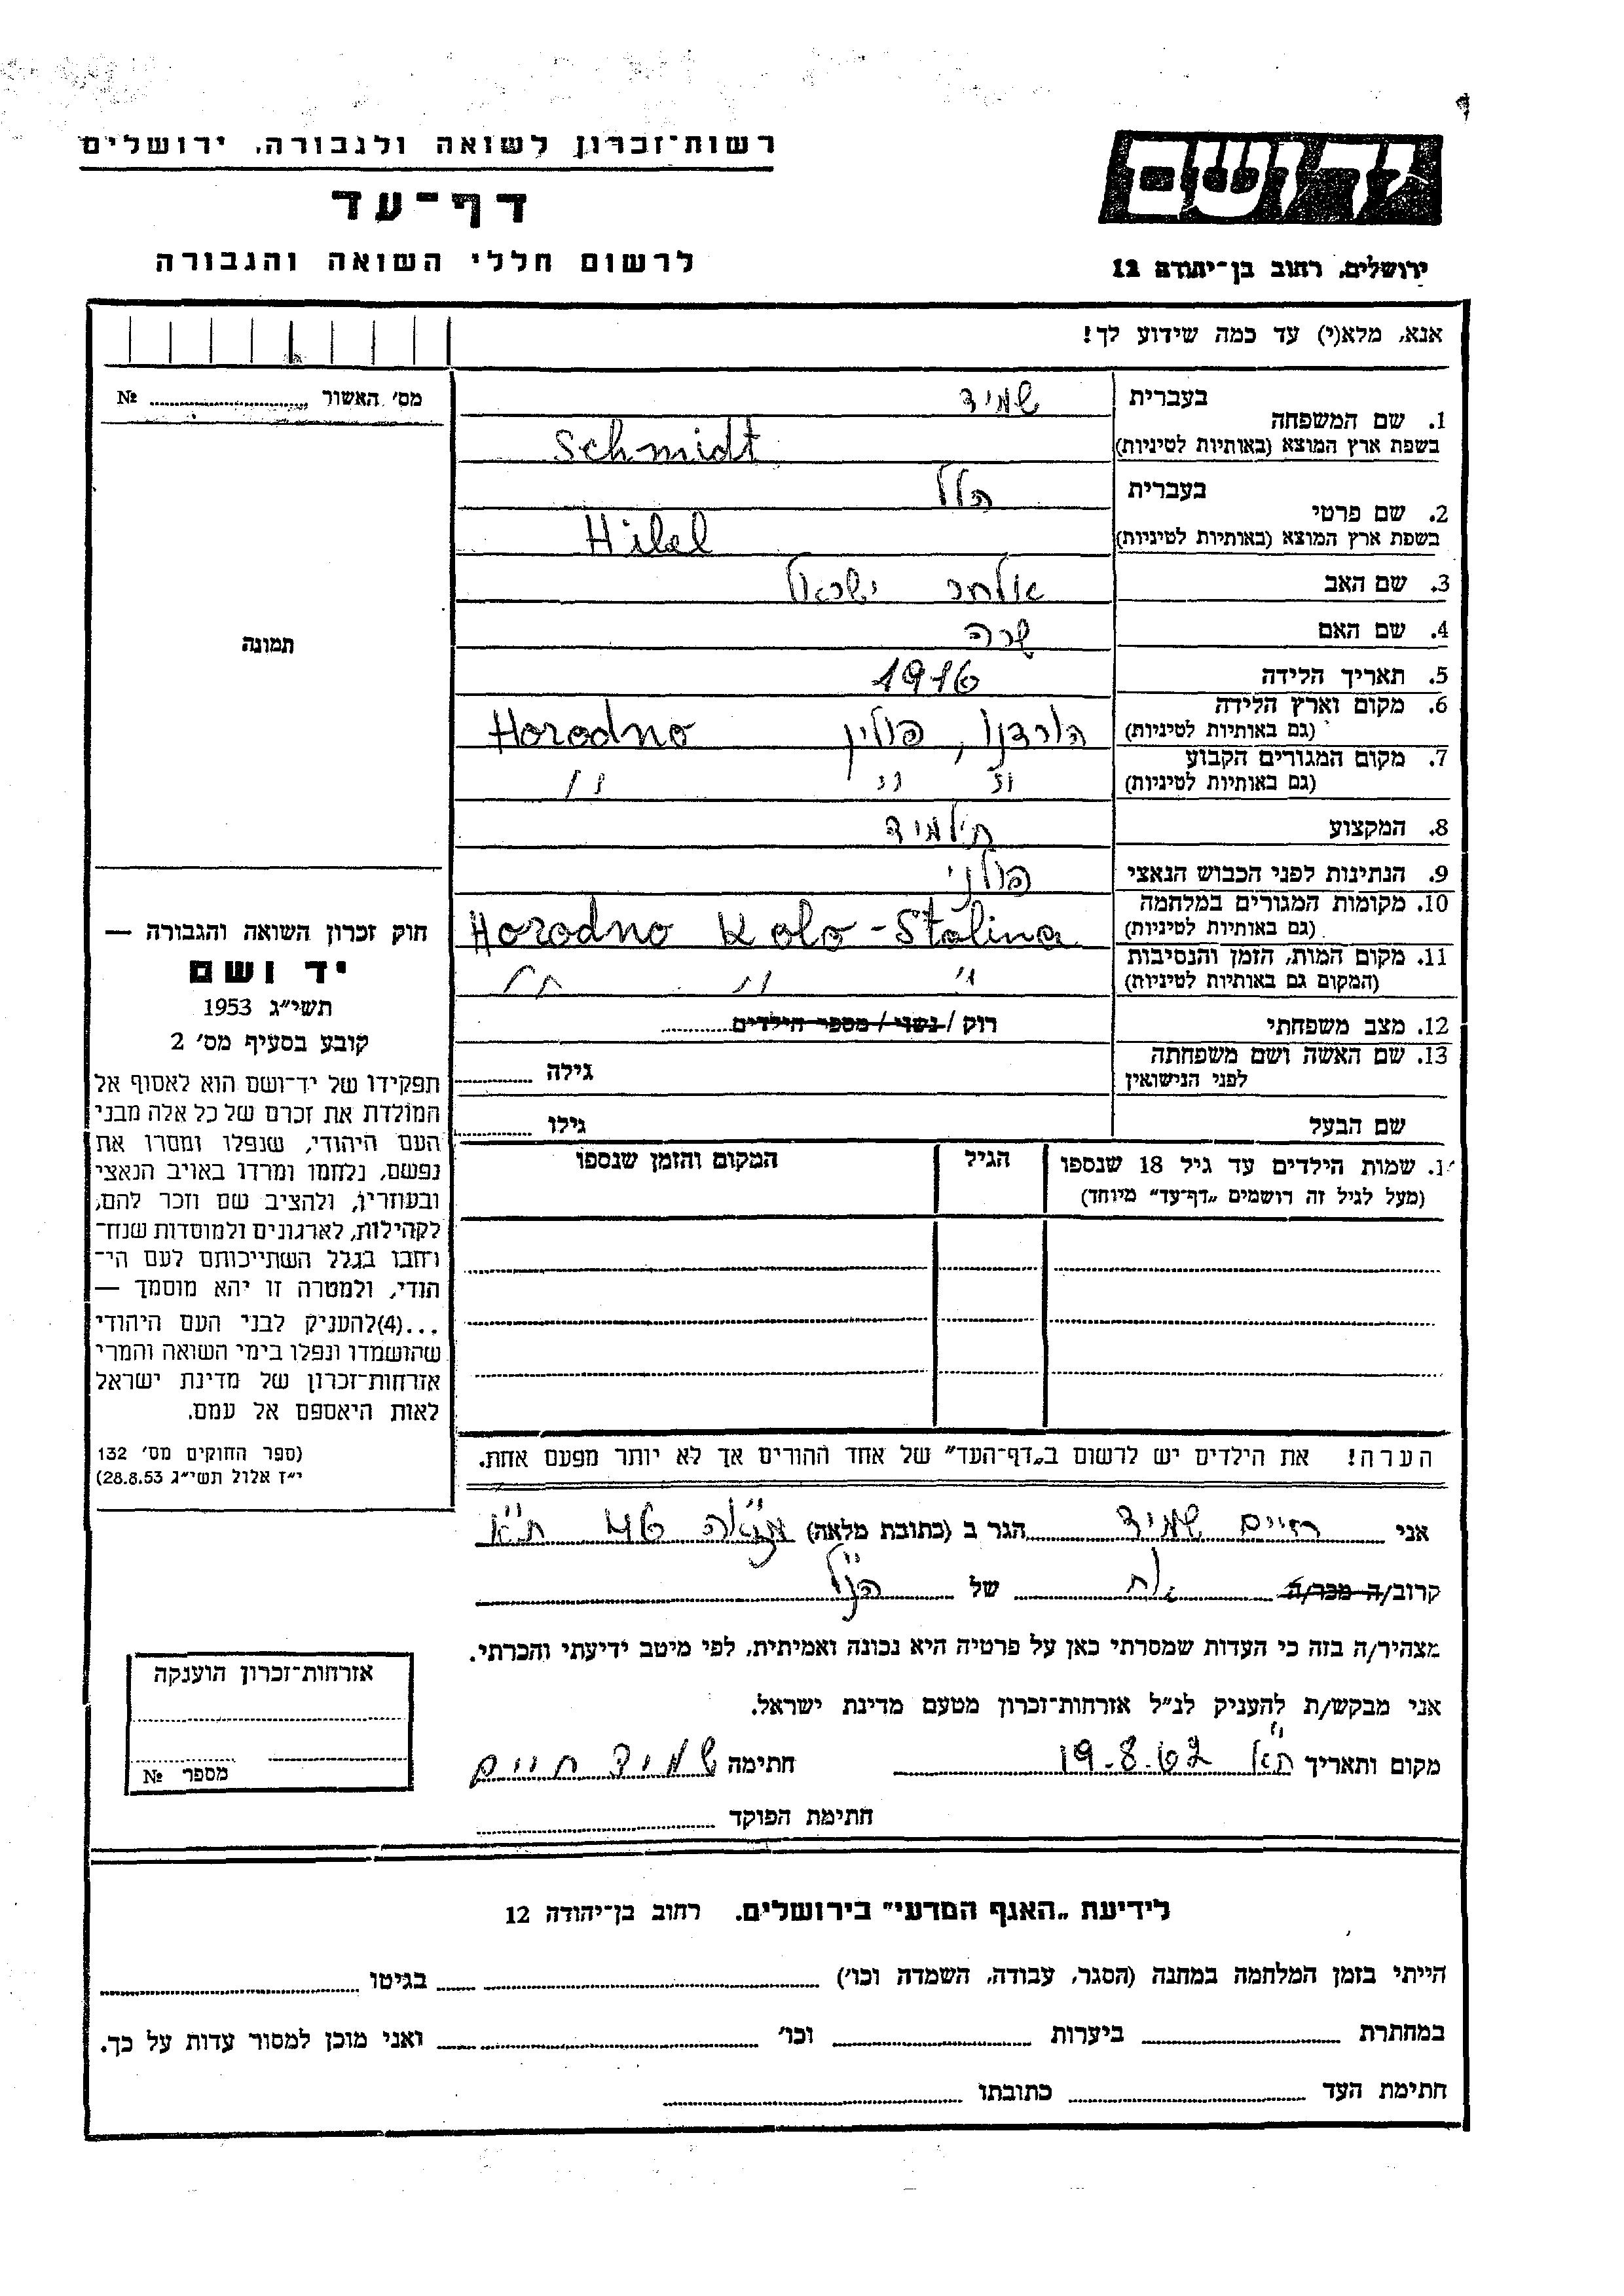 רשות־זכרון לשואה ולגבורה, ירושלים
דף־עד
לרשום חללי השואה והגבורה
יד ושם
ירושלים, רחוב בן־יהודה 12
אנא, מלא(י) עד כמה שידוע לך!
מס׳ האשור № ........
תמונה
1. שם המשפחה בעברית שמיד
בשפת ארץ המוצא (באותיות לטיניות) Schmidt
2. שם פרטי בעברית הלל
בשפת ארץ המוצא (באותיות לטיניות) Hilel
3. שם האב ישראל
4. שם האם שרה
5. תאריך הלידה 1916
6. מקום וארץ הלידה (גם באותיות לטיניות) הורדנו, פולין Horodno
7. מקום המגורים הקבוע (גם באותיות לטיניות) " " "
8. המקצוע תלמיד
9. הנתינות לפני הכבוש הנאצי פולני
10. מקומות המגורים במלחמה (גם באותיות לטיניות) Horodno Kolo-Stolina
11. מקום המות, הזמן והנסיבות (המקום גם באותיות לטיניות) " " "
12. מצב משפחתי רוק / נשוי / מספר הילדים........
13. שם האשה ושם משפחתה לפני הנישואין גילה ........
שם הבעל גילו ........
1. שמות הילדים עד גיל 18 שנספו
(מעל לגיל זה רושמים „דף־עד" מיוחד)
הגיל
המקום והזמן שנספו
הערה! את הילדים יש לרשום ב„דף־העד" של אחד ההורים אך לא יותר מפעם אחת.
חוק זכרון השואה והגבורה —
יד ושם
תשי״ג 1953
קובע בסעיף מס׳ 2
תפקידו של יד־ושם הוא לאסוף אל
המולדת את זכרם של כל אלה מבני
העם היהודי, שנפלו ומסרו את
נפשם, נלחמו ומרדו באויב הנאצי
ובעוזריו, ולהציב שם וזכר להם,
לקהילות, לארגונים ולמוסדות שנח־
רחבו בגלל השתייכותם לעם הי־
הודי, ולמטרה זו יהא מוסמך —
...(4)להעניק לבני העם היהודי
שהושמדו ונפלו בימי השואה והמרי
אזרחות־זכרון של מדינת ישראל
לאות היאספם אל עמם.
(ספר החוקים מס׳ 132
י״ז אלול תשי״ג 28.8.53)
אני חיים שמיד הגר ב (כתובת מלאה) 46 ת״א
קרוב/ה מכר/ה אח של הנ״ל
מצהיר/ה בזה כי העדות שמסרתי כאן על פרטיה היא נכונה ואמיתית, לפי מיטב ידיעתי והכרתי.
אני מבקש/ת להעניק לנ״ל אזרחות־זכרון מטעם מדינת ישראל.
מקום ותאריך ת״א 19.8.62 חתימה שמיד חיים
חתימת הפוקד ........
אזרחות־זכרון הוענקה
מספר №
לידיעת „האגף המדעי" בירושלים. רחוב בן־יהודה 12
הייתי בזמן המלחמה במחנה (הסגר, עבודה, השמדה וכו׳) ........ בגיטו ........
במחתרת ........ ביערות ........ וכו׳ ........ ואני מוכן למסור עדות על כך.
חתימת העד ........ כתובתו ........